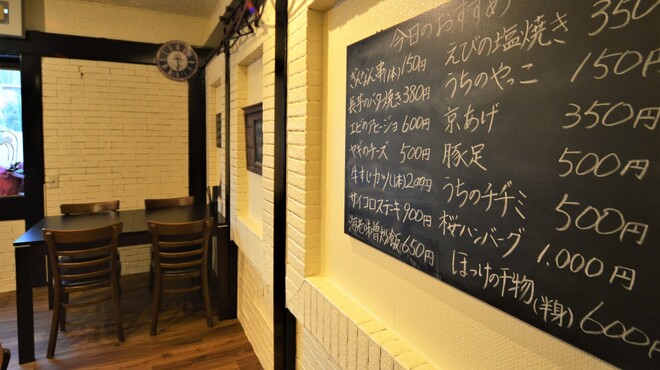 今日のおすすめ
ぎんなん串(1本)150円
長芋のバター焼き 380円
エビのアヒージョ 600円
ヤギのチーズ 500円
牛すじカツ(1本)200円
サイコロステーキ 900円
海老味噌炒飯 650円
えびの塩焼き 350
うちのやっこ 150円
京あげ 350円
豚足 500円
うちのチヂミ 500円
桜ハンバーグ 1.000円
ほっけの干物(半身)600円